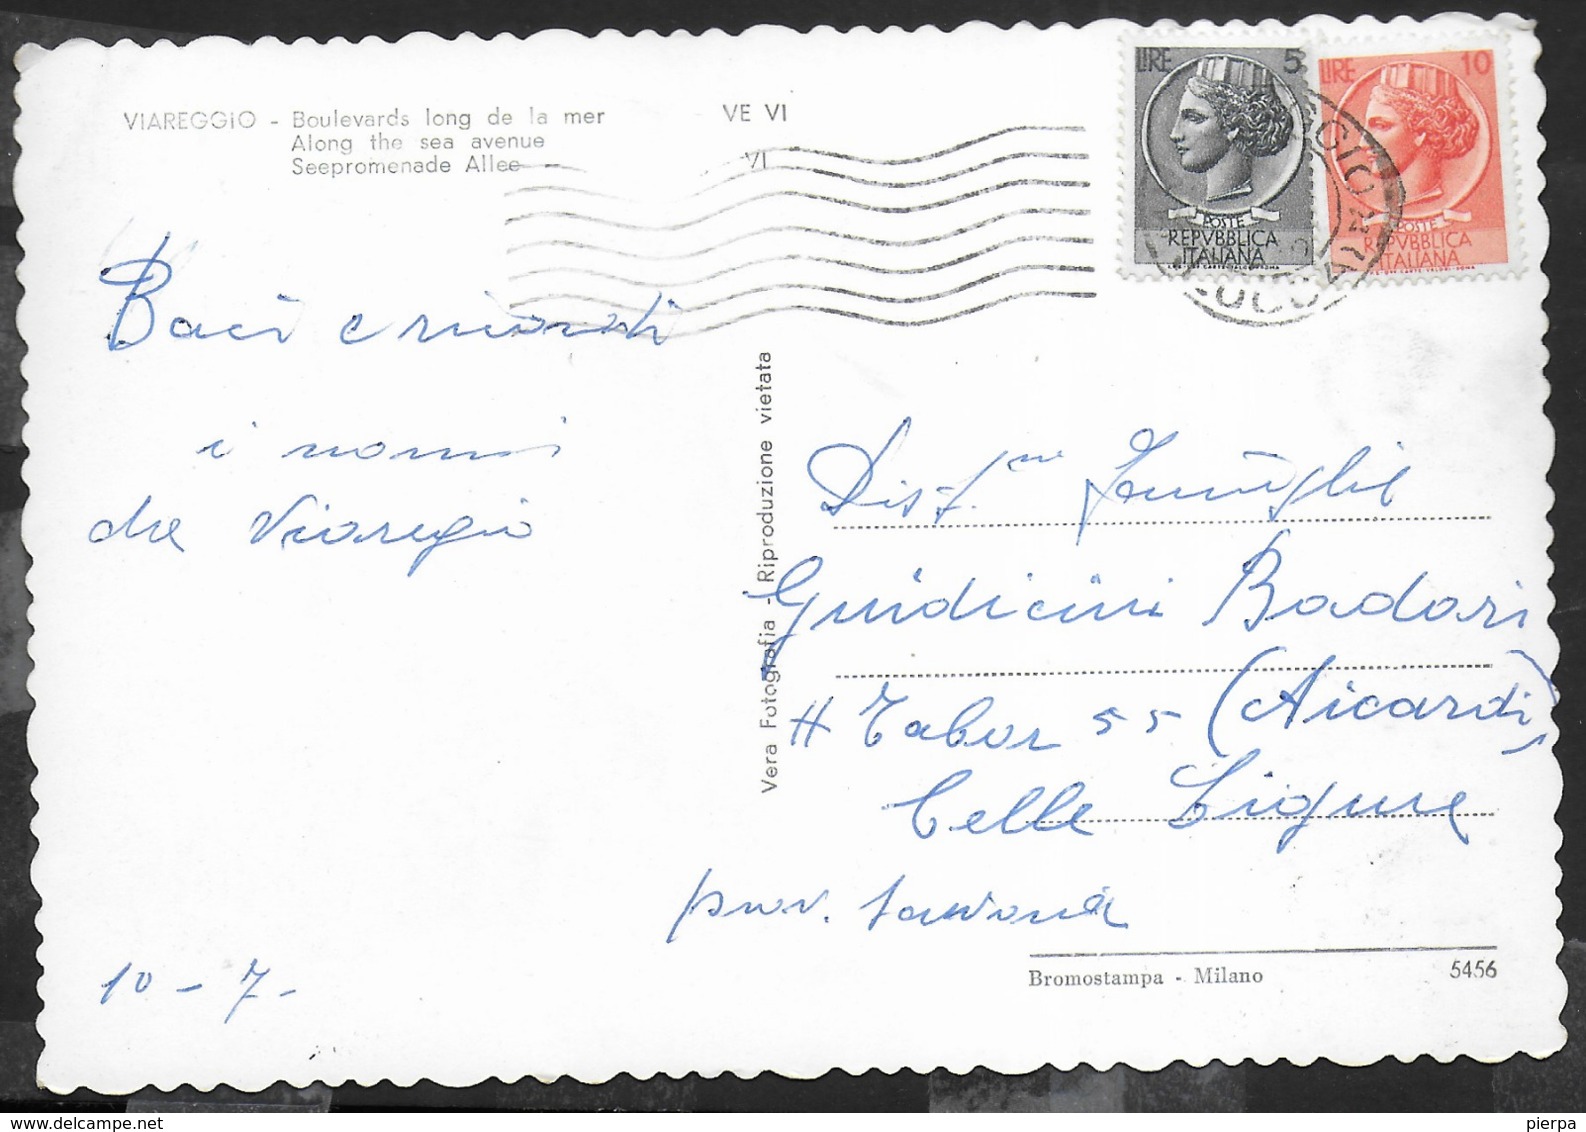 VIAREGGIO - Boulevards long de la mer
Along the sea avenue
Seepromenade Allee
VE VI
VI
LIRE 5
POSTE
REPVBBLICA
ITALIANA
LIRE 10
POSTE
REPVBBLICA
ITALIANA
Baci e ricordi
i nonni
da Viareggio
10 - 7 -
Vera Fotografia - Riproduzione vietata
Dist.me Famiglie
Guidicini Badari
Tabor 55 (Aicardi)
Celle Ligure
prov. Savona
Bromostampa - Milano
5456
pierpa